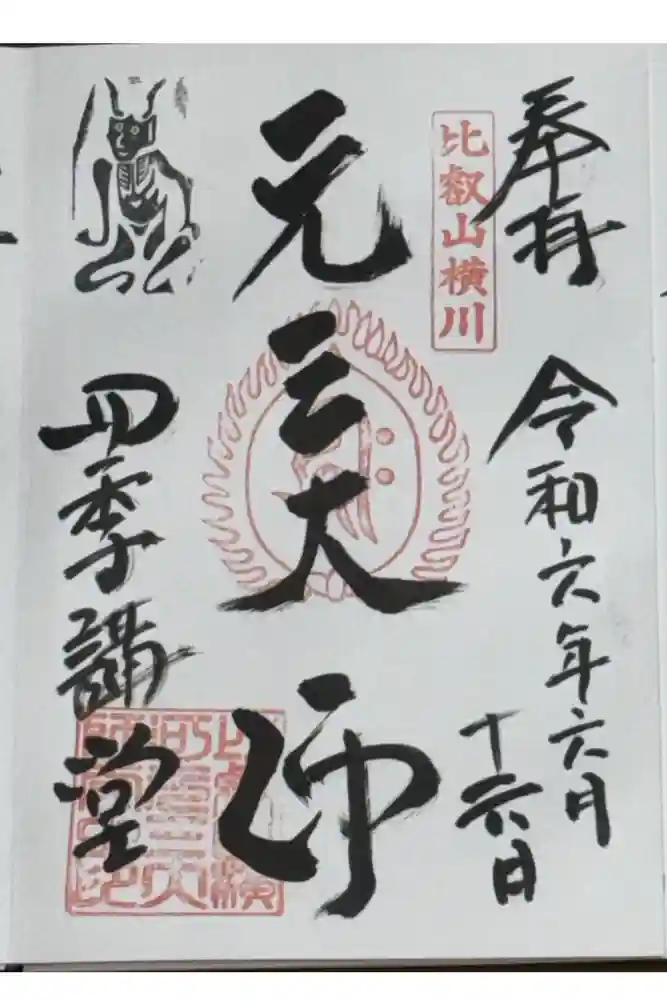 奉拝
令和六年六月
十六日
比叡山横川
元三大師
四季講堂